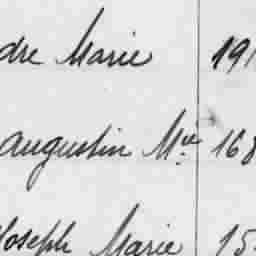 dre Marie 191
augustin M.ie 168
Joseph Marie 15